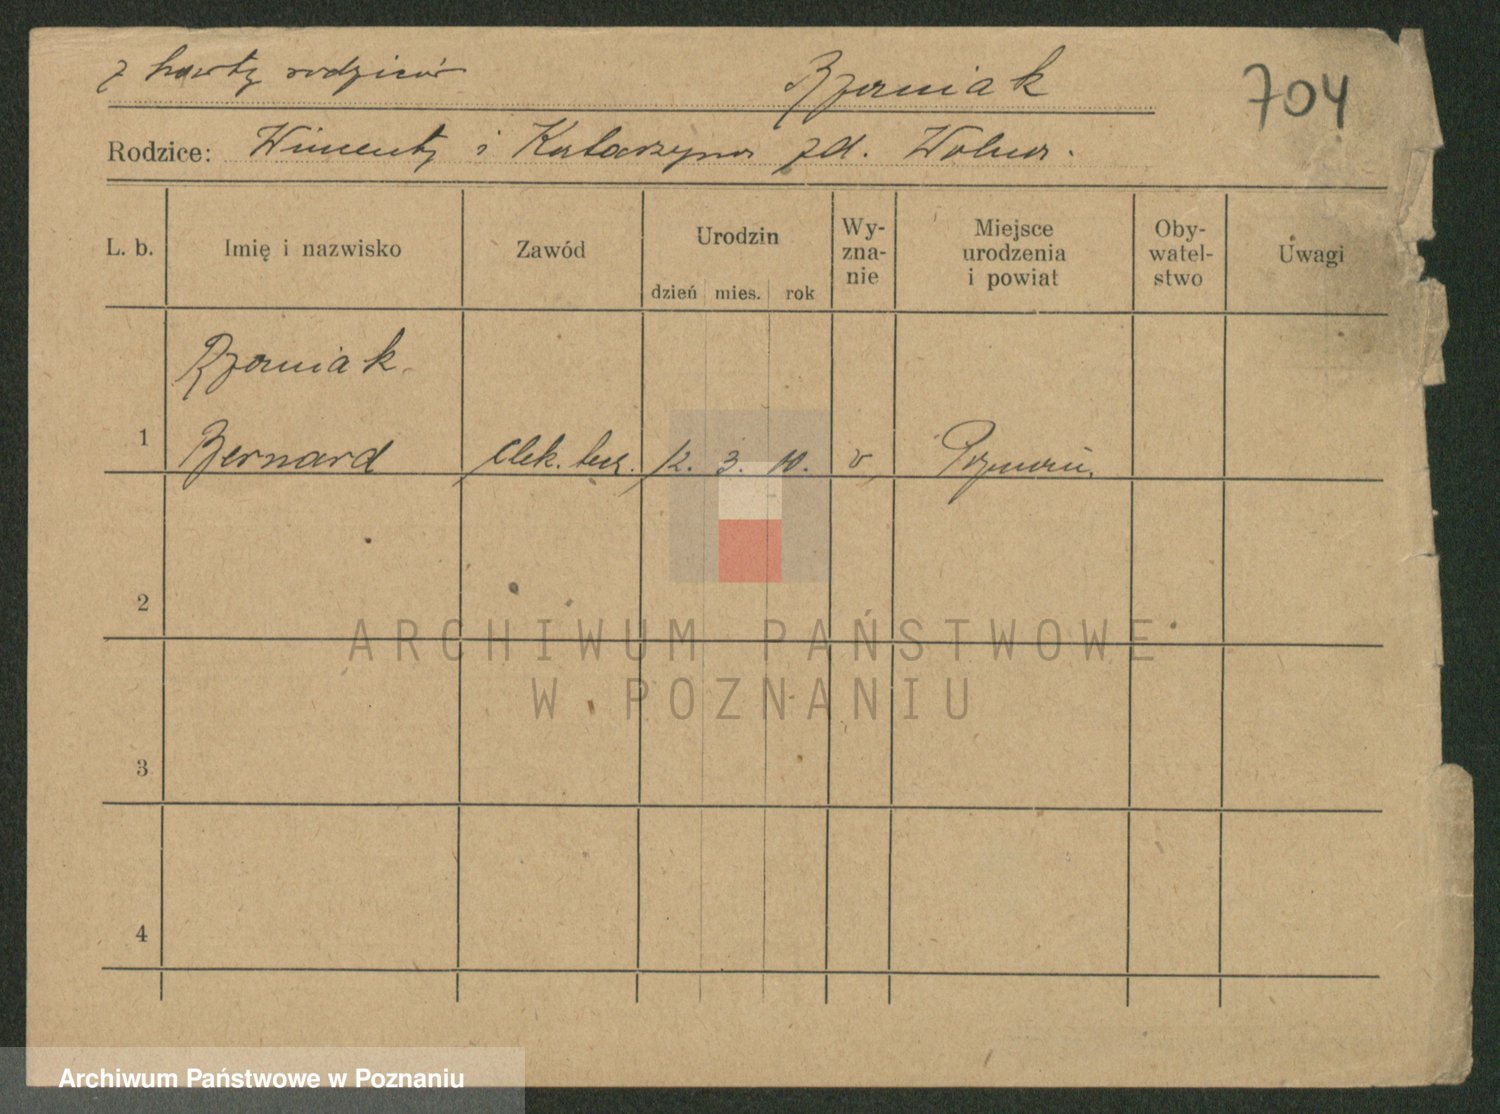 z karty rodziców Rzerniak 704
Rodzice: Wincenty i Katarzyna zd. Wolna.
L. b. Imię i nazwisko Zawód Urodzin Wyznanie Miejsce urodzenia i powiat Obywatelstwo Uwagi
dzień mies. rok
Rzerniak
1 Bernard 12. 3. 10. Poznań
2
3
4
ARCHIWUM PAŃSTWOWE
W POZNANIU
Archiwum Państwowe w Poznaniu